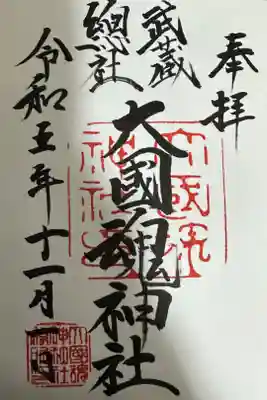 奉拝
武蔵
總社
大國魂神社
令和五年十一月一日
大國魂神社